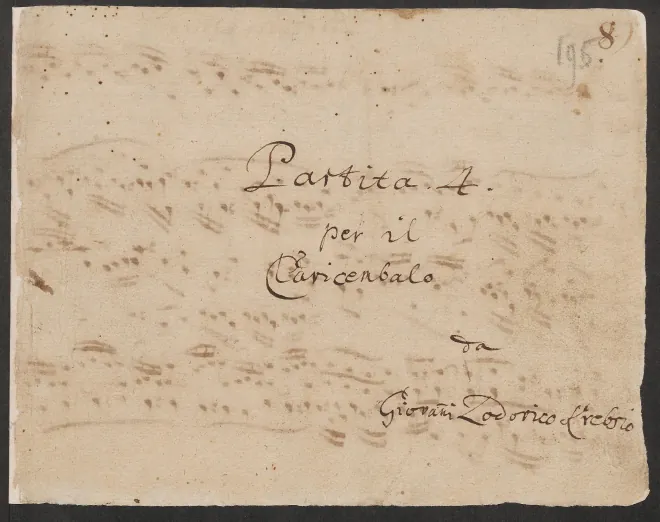 8)
195.
Partita. 4.
per il
Claricenbalo
da
Giovan̄i Lodovico Krebsio